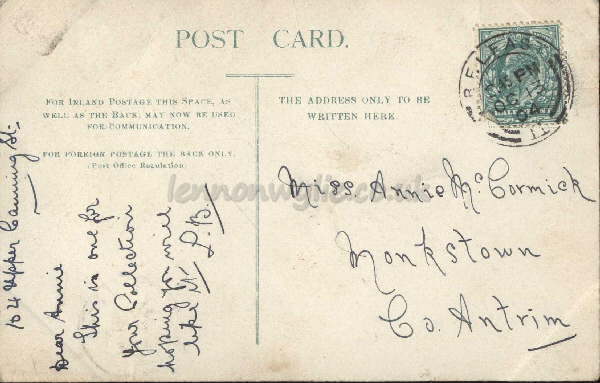 POST CARD.
FOR INLAND POSTAGE THIS SPACE, AS
WELL AS THE BACK, MAY NOW BE USED
FOR COMMUNICATION.
FOR FOREIGN POSTAGE THE BACK ONLY.
(Post Office Regulation)
THE ADDRESS ONLY TO BE
WRITTEN HERE.
BELFAST
PM
OC 13
04
Miss. Annie McCormick
Monkstown
Co. Antrim
104 Upper Canning St.
Dear Annie
This is one for
your Collection
hoping you will
like it L.B.
lennonwylie.co.uk